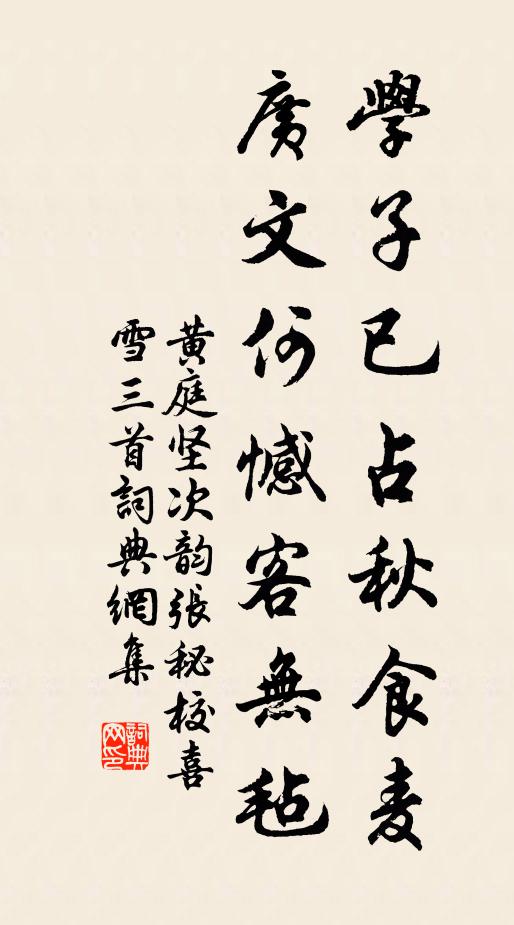 學子已占秋食麦
廣文何憾客無毡
黄庭坚次韵張秘校喜
雪三首詞典網集
詞典
网印